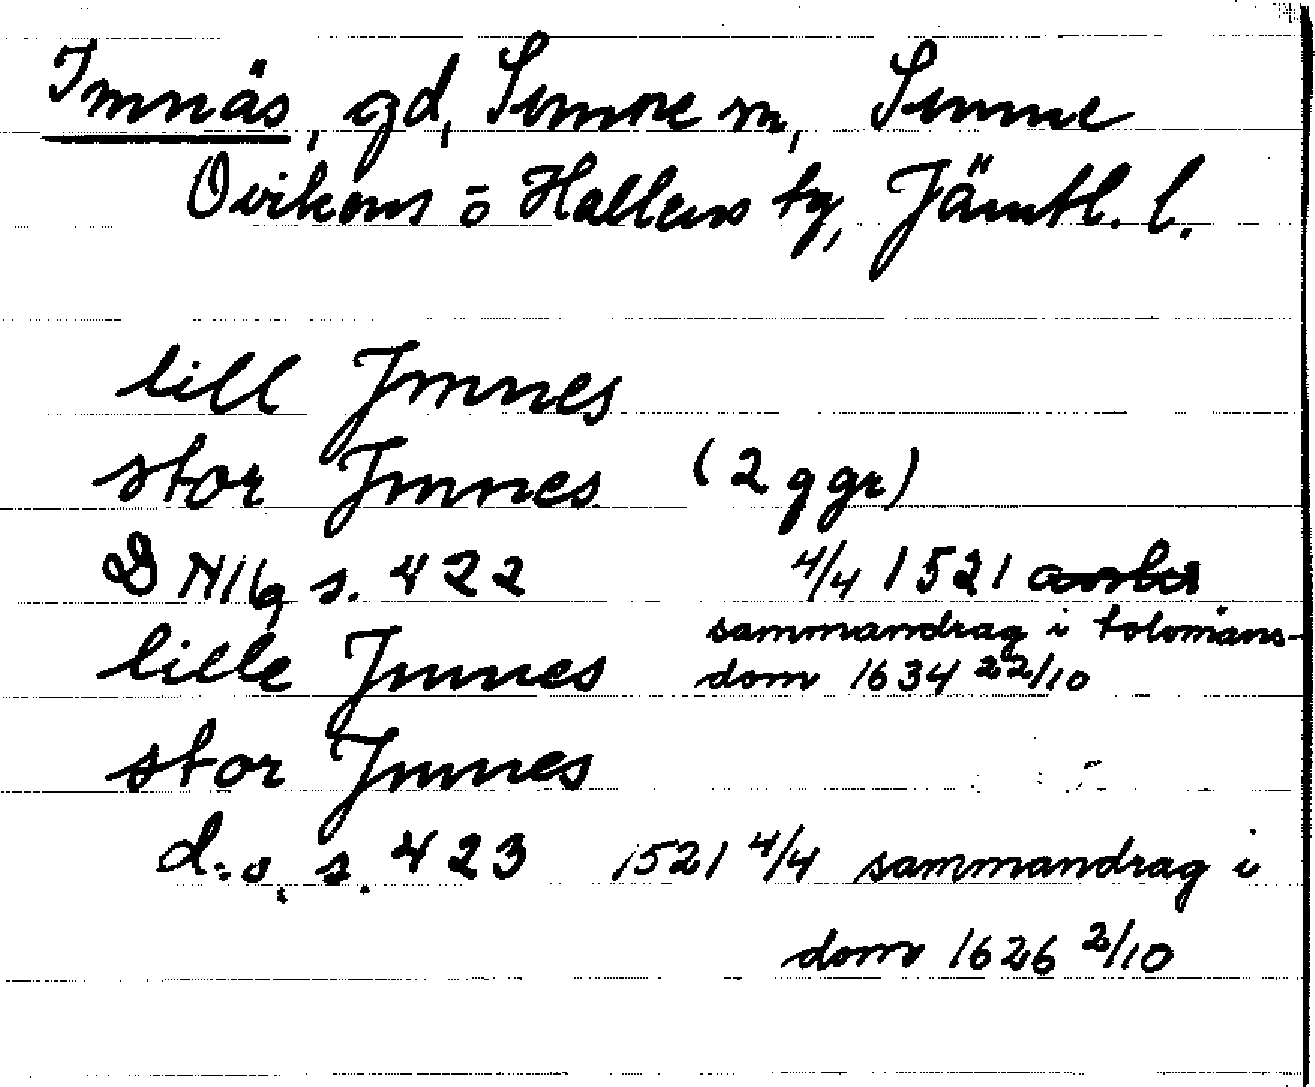 Imnäs, gd, Sunne sn, Sunne
Ovikens o Hallens tg, Jämtl. l.
lill Jmnes
stor Jmnes (2 ggr)
D N 16, s. 422 4/4 1521
sammandrag i tolvmans-
lille Jmnes dom 1634 22/10
stor Jmnes
d.o. s. 423 1521 4/4 sammandrag i
dom 1626 2/10